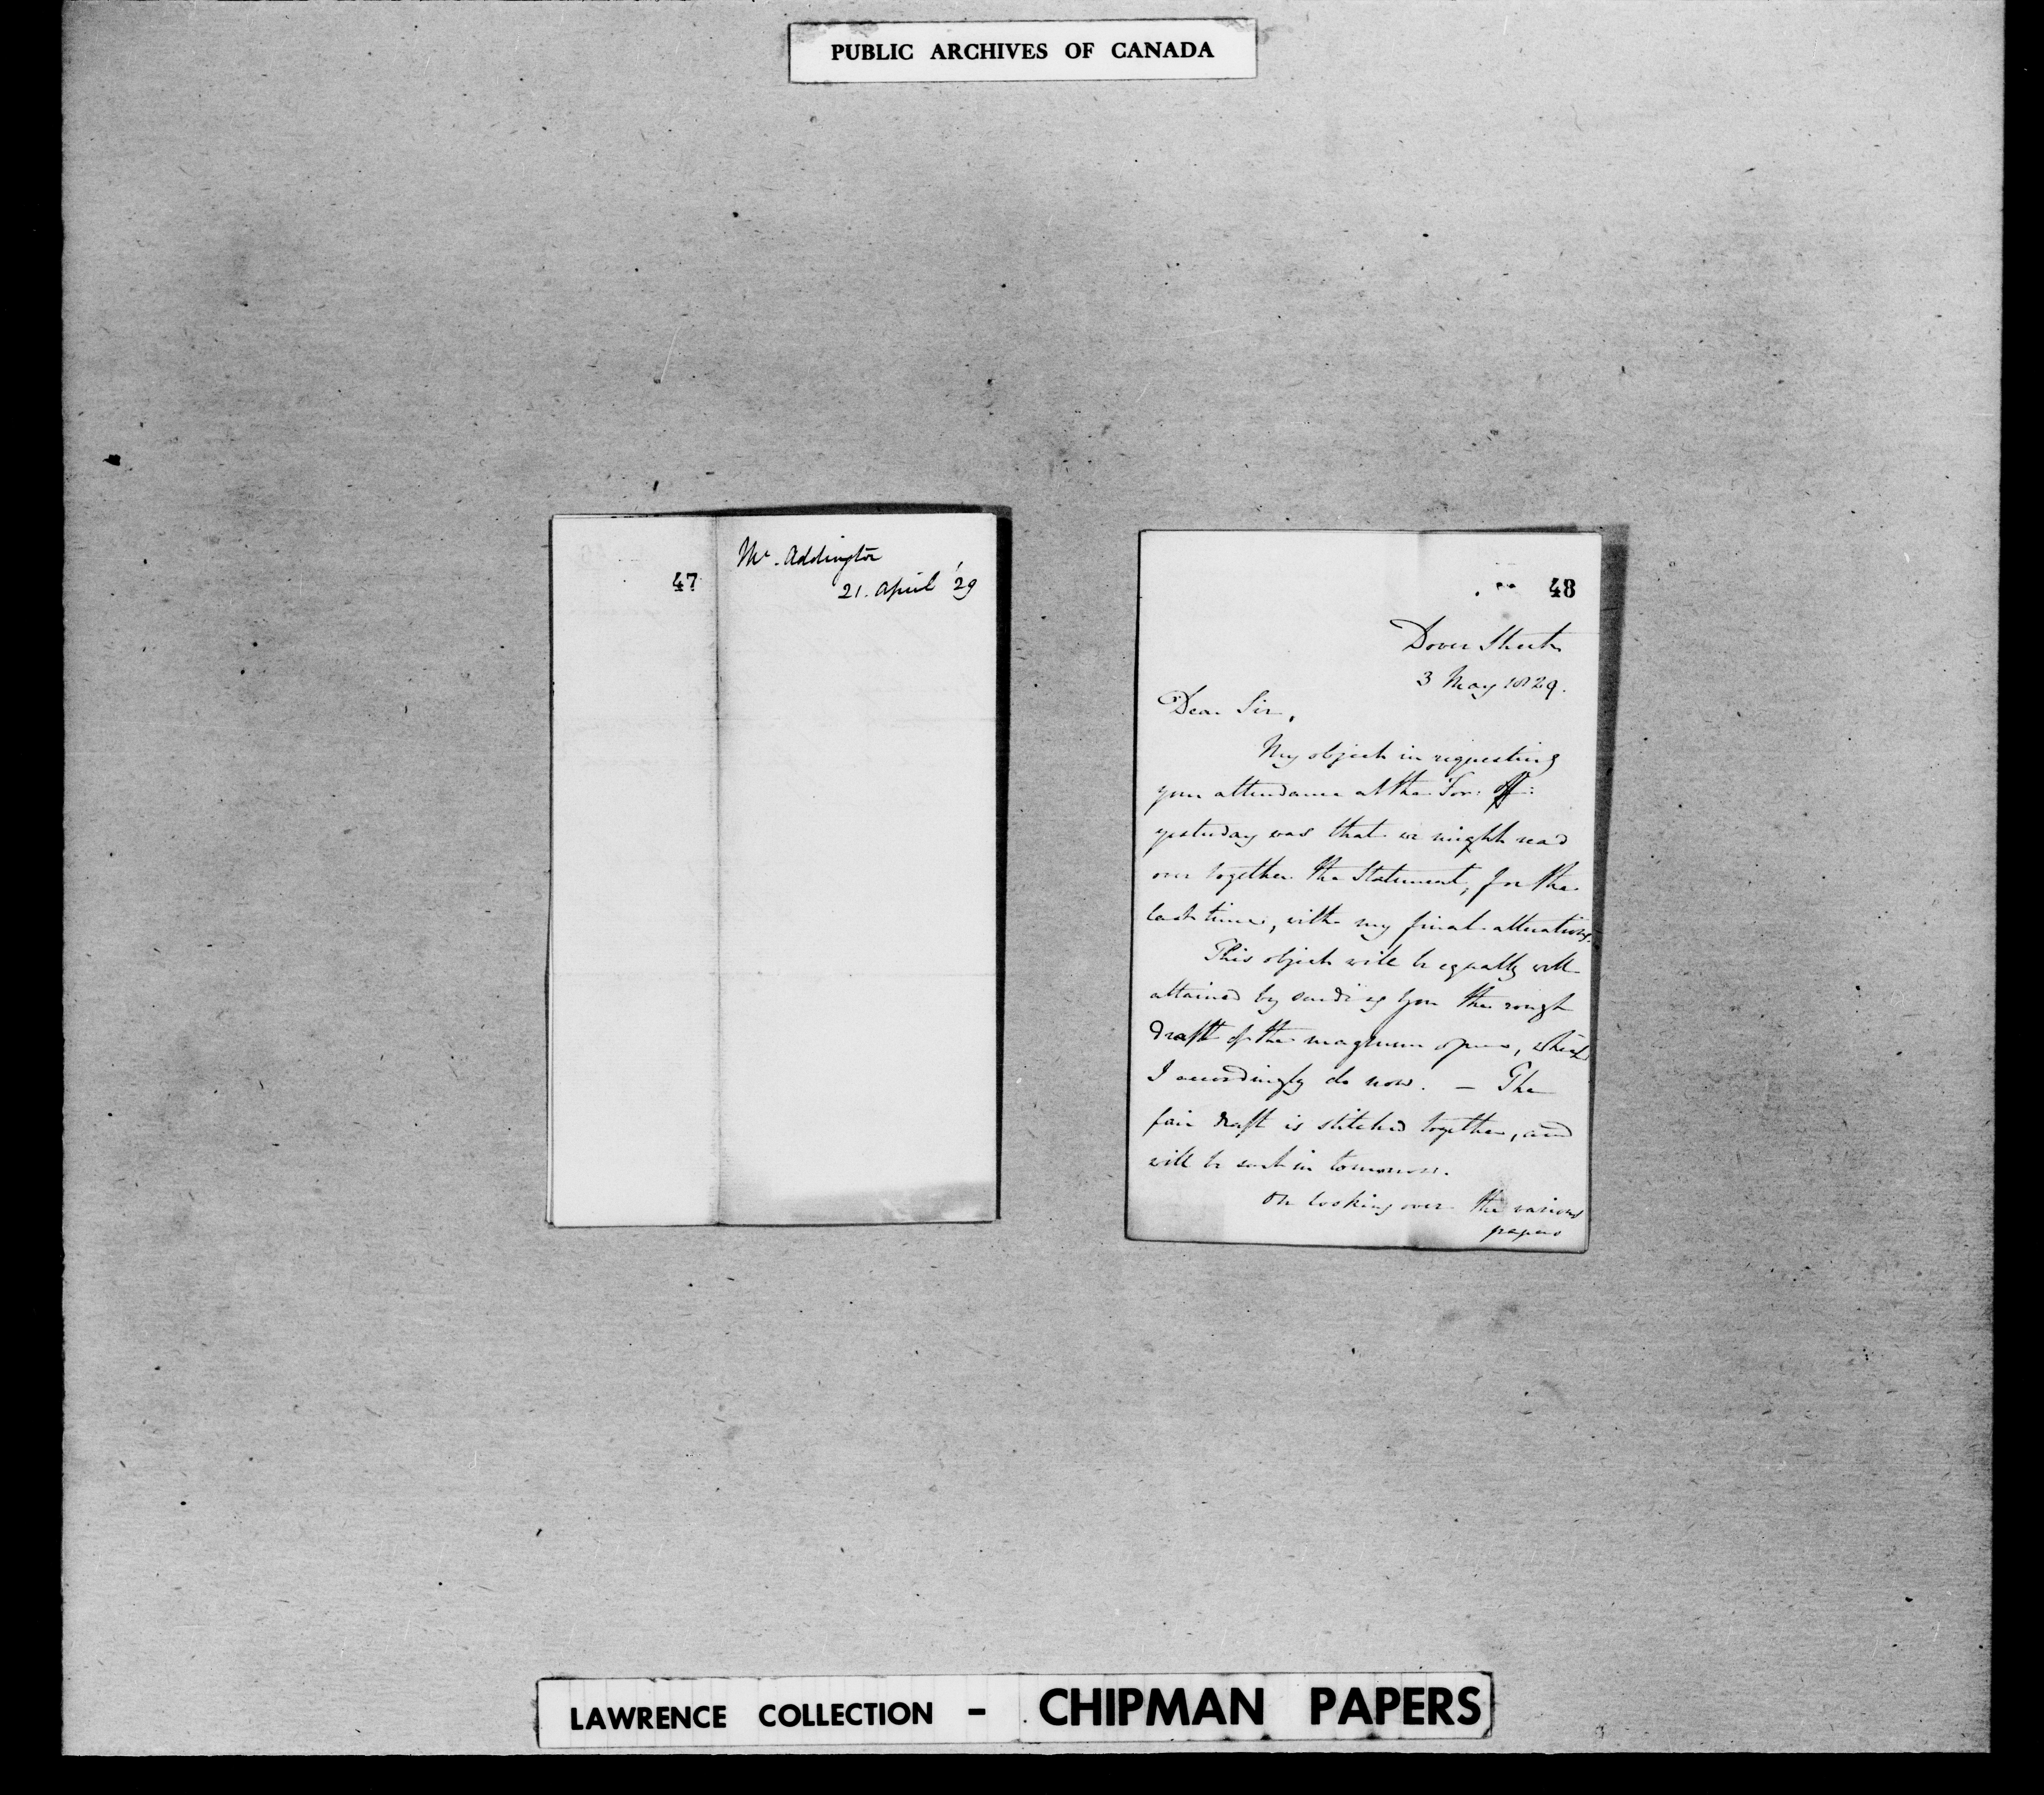 PUBLIC ARCHIVES OF CANADA
47
Mr. Addington
21. April '29
48
Dover Street
3 May 1829.
Dear Sir,
My object in requesting
your attendance at the For: Off:
yesterday was that we might read
over together the Statement, for the
last time, with my final alterations.
This object will be equally well
attained by sending you the rough
draft of the magnum opus, which
I accordingly do now. — The
fair draft is stitched together, and
will be sent in tomorrow.
On looking over the various
papers
LAWRENCE COLLECTION - CHIPMAN PAPERS